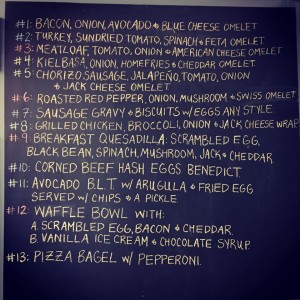 #1: BACON, ONION, AVOCADO & BLUE CHEESE OMELET
#2: TURKEY, SUNDRIED TOMATO, SPINACH & FETA OMELET
#3: MEATLOAF, TOMATO, ONION & AMERICAN CHEESE OMELET
#4: KIELBASA, ONION, HOMEFRIES & CHEDDAR OMELET.
#5: CHORIZO SAUSAGE, JALAPEÑO, TOMATO, ONION
& JACK CHEESE OMELET
#6: ROASTED RED PEPPER, ONION, MUSHROOM & SWISS OMELET
#7: SAUSAGE GRAVY & BISCUITS W/ EGGS ANY STYLE
#8: GRILLED CHICKEN, BROCCOLI, ONION & JACK CHEESE WRAP
#9: BREAKFAST QUESADILLA: SCRAMBLED EGG,
BLACK BEAN, SPINACH, MUSHROOM, JACK & CHEDDAR
#10: CORNED BEEF HASH EGGS BENEDICT.
#11: AVOCADO B.L.T W/ ARUGULA & FRIED EGG
SERVED W/ CHIPS & A PICKLE
#12: WAFFLE BOWL WITH:
A. SCRAMBLED EGG, BACON & CHEDDAR.
B. VANILLA ICE CREAM & CHOCOLATE SYRUP.
#13: PIZZA BAGEL W/ PEPPERONI.